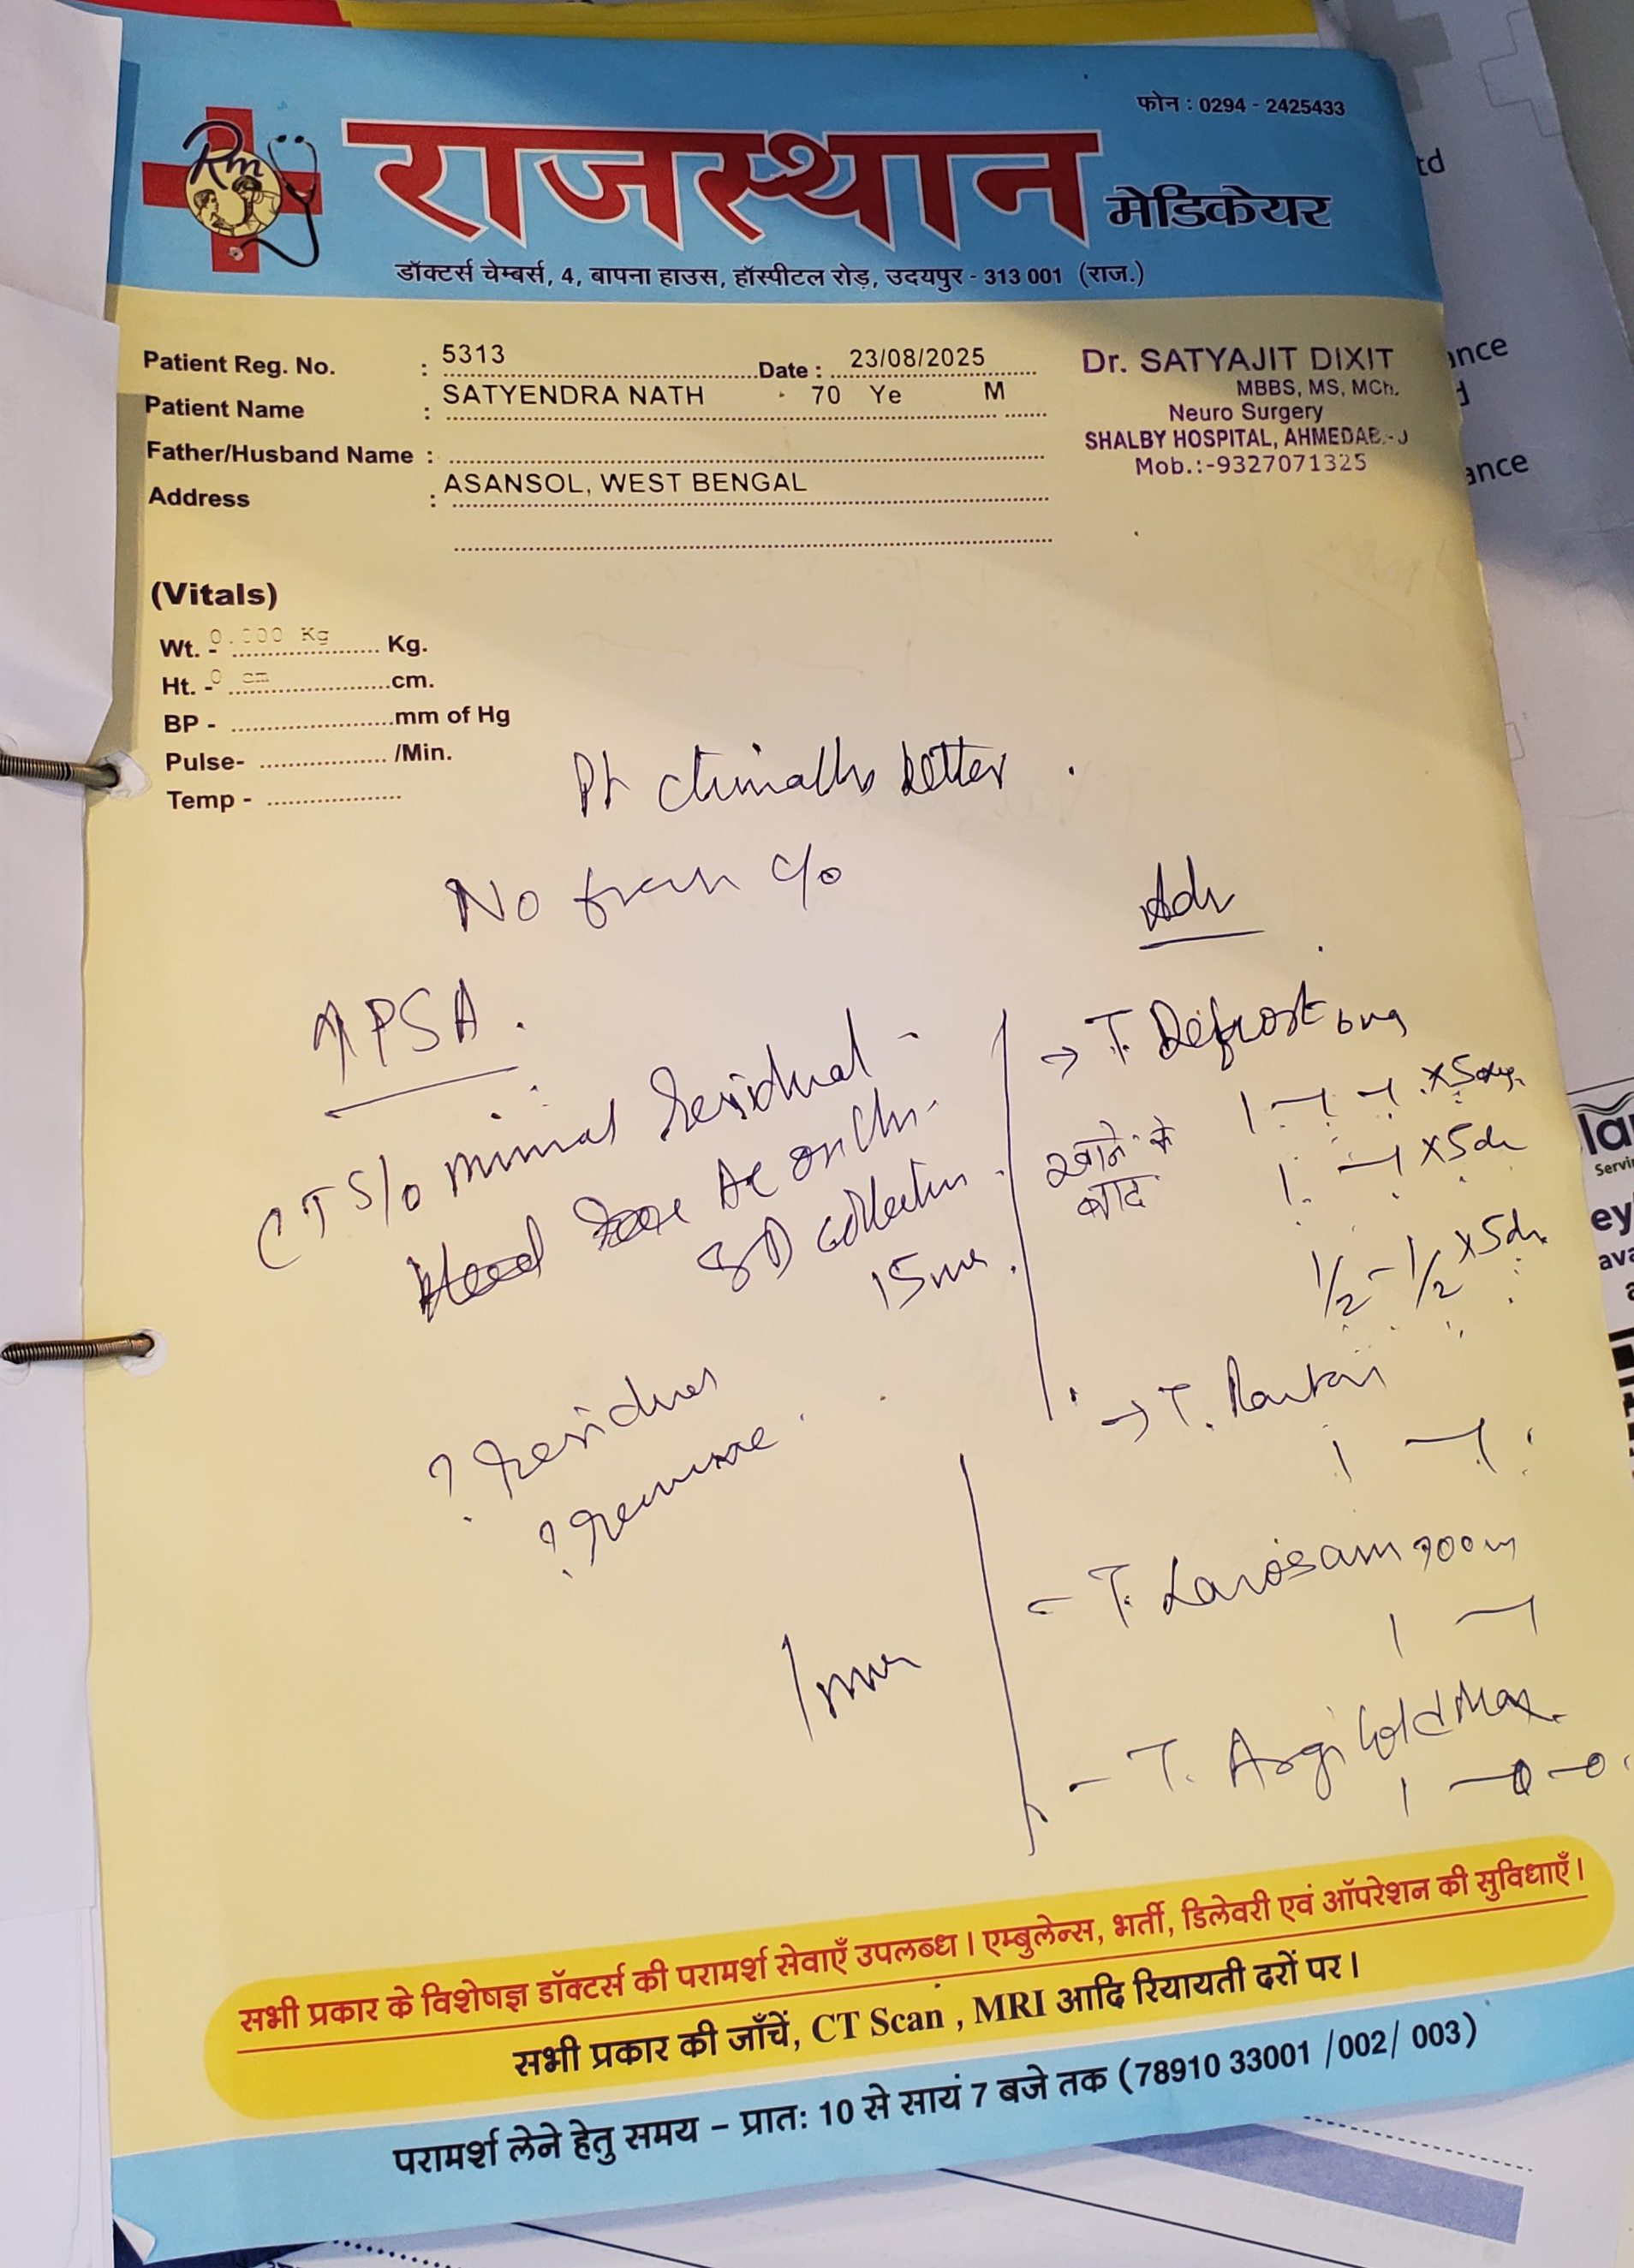 फोन : 0294 - 2425433
Rm
राजस्थान मेडिकेयर
डॉक्टर्स चेम्बर्स, 4, बापना हाउस, हॉस्पीटल रोड़, उदयपुर - 313 001 (राज.)
Patient Reg. No. : 5313 Date : 23/08/2025
Patient Name : SATYENDRA NATH 70 Ye M
Father/Husband Name :
Address : ASANSOL, WEST BENGAL
Dr. SATYAJIT DIXIT
MBBS, MS, MCh.
Neuro Surgery
SHALBY HOSPITAL, AHMEDAB
Mob.:-9327071325
(Vitals)
Wt. - 0.000 Kg Kg.
Ht. - 0 cm cm.
BP - mm of Hg
Pulse- /Min.
Temp -
Pt clinically better.
No fresh c/o
↑PSA.
CT S/o minimal residual
Ac on Chr.
SD collection
15mm.
? residual
?
Adv
→ T. 6mg
1 - 1 - 1 x 5days
खाने के बाद
1 - 1 x 5d
1/2 - 1/2 x 5d
→ T.
1 - 1
- T.
1 - 1
- T. ArgiGold Max
1 - 0 - 0
सभी प्रकार के विशेषज्ञ डॉक्टर्स की परामर्श सेवाएँ उपलब्ध। एम्बुलेन्स, भर्ती, डिलेवरी एवं ऑपरेशन की सुविधाएँ।
सभी प्रकार की जाँचें, CT Scan, MRI आदि रियायती दरों पर।
परामर्श लेने हेतु समय – प्रातः 10 से सायं 7 बजे तक (78910 33001 /002/ 003)